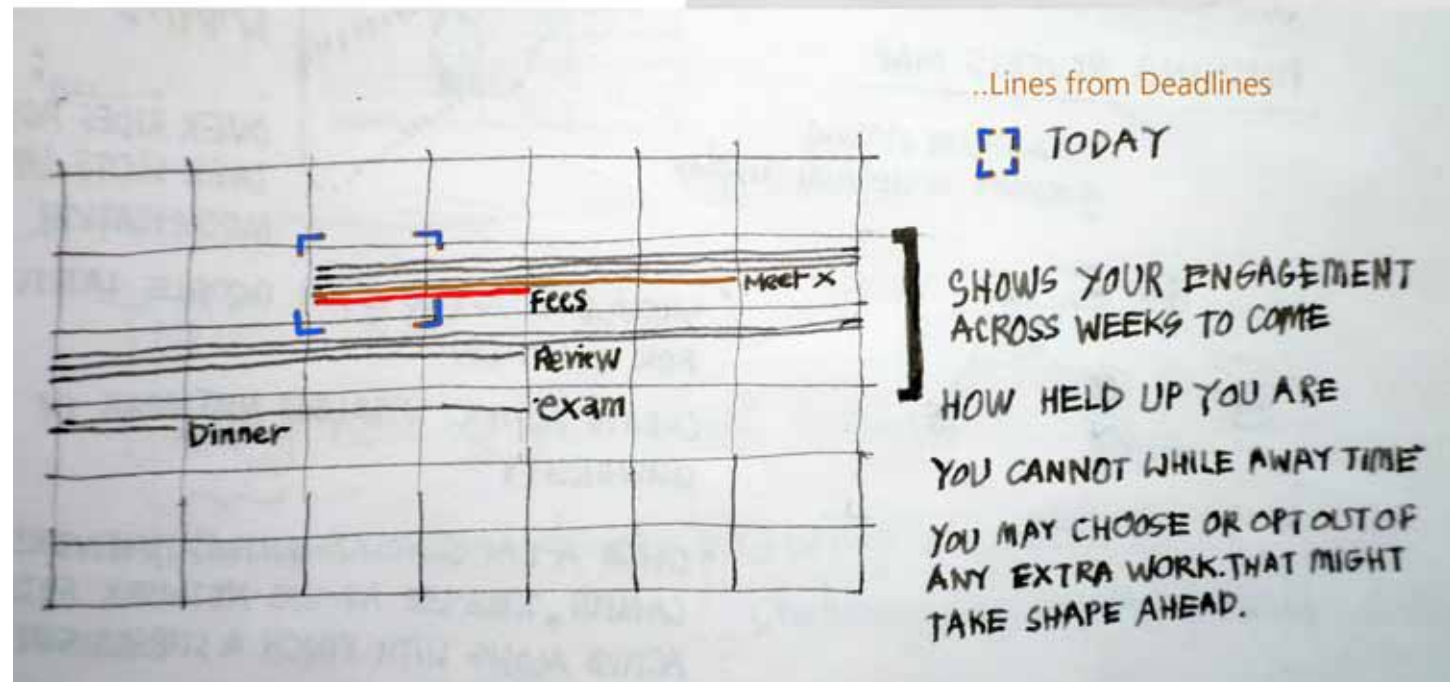 ..Lines from Deadlines
TODAY
Meet x
Fees
Review
exam
Dinner
SHOWS YOUR ENGAGEMENT
ACROSS WEEKS TO COME
HOW HELD UP YOU ARE
YOU CANNOT WHILE AWAY TIME
YOU MAY CHOOSE OR OPT OUT OF
ANY EXTRA WORK.THAT MIGHT
TAKE SHAPE AHEAD.